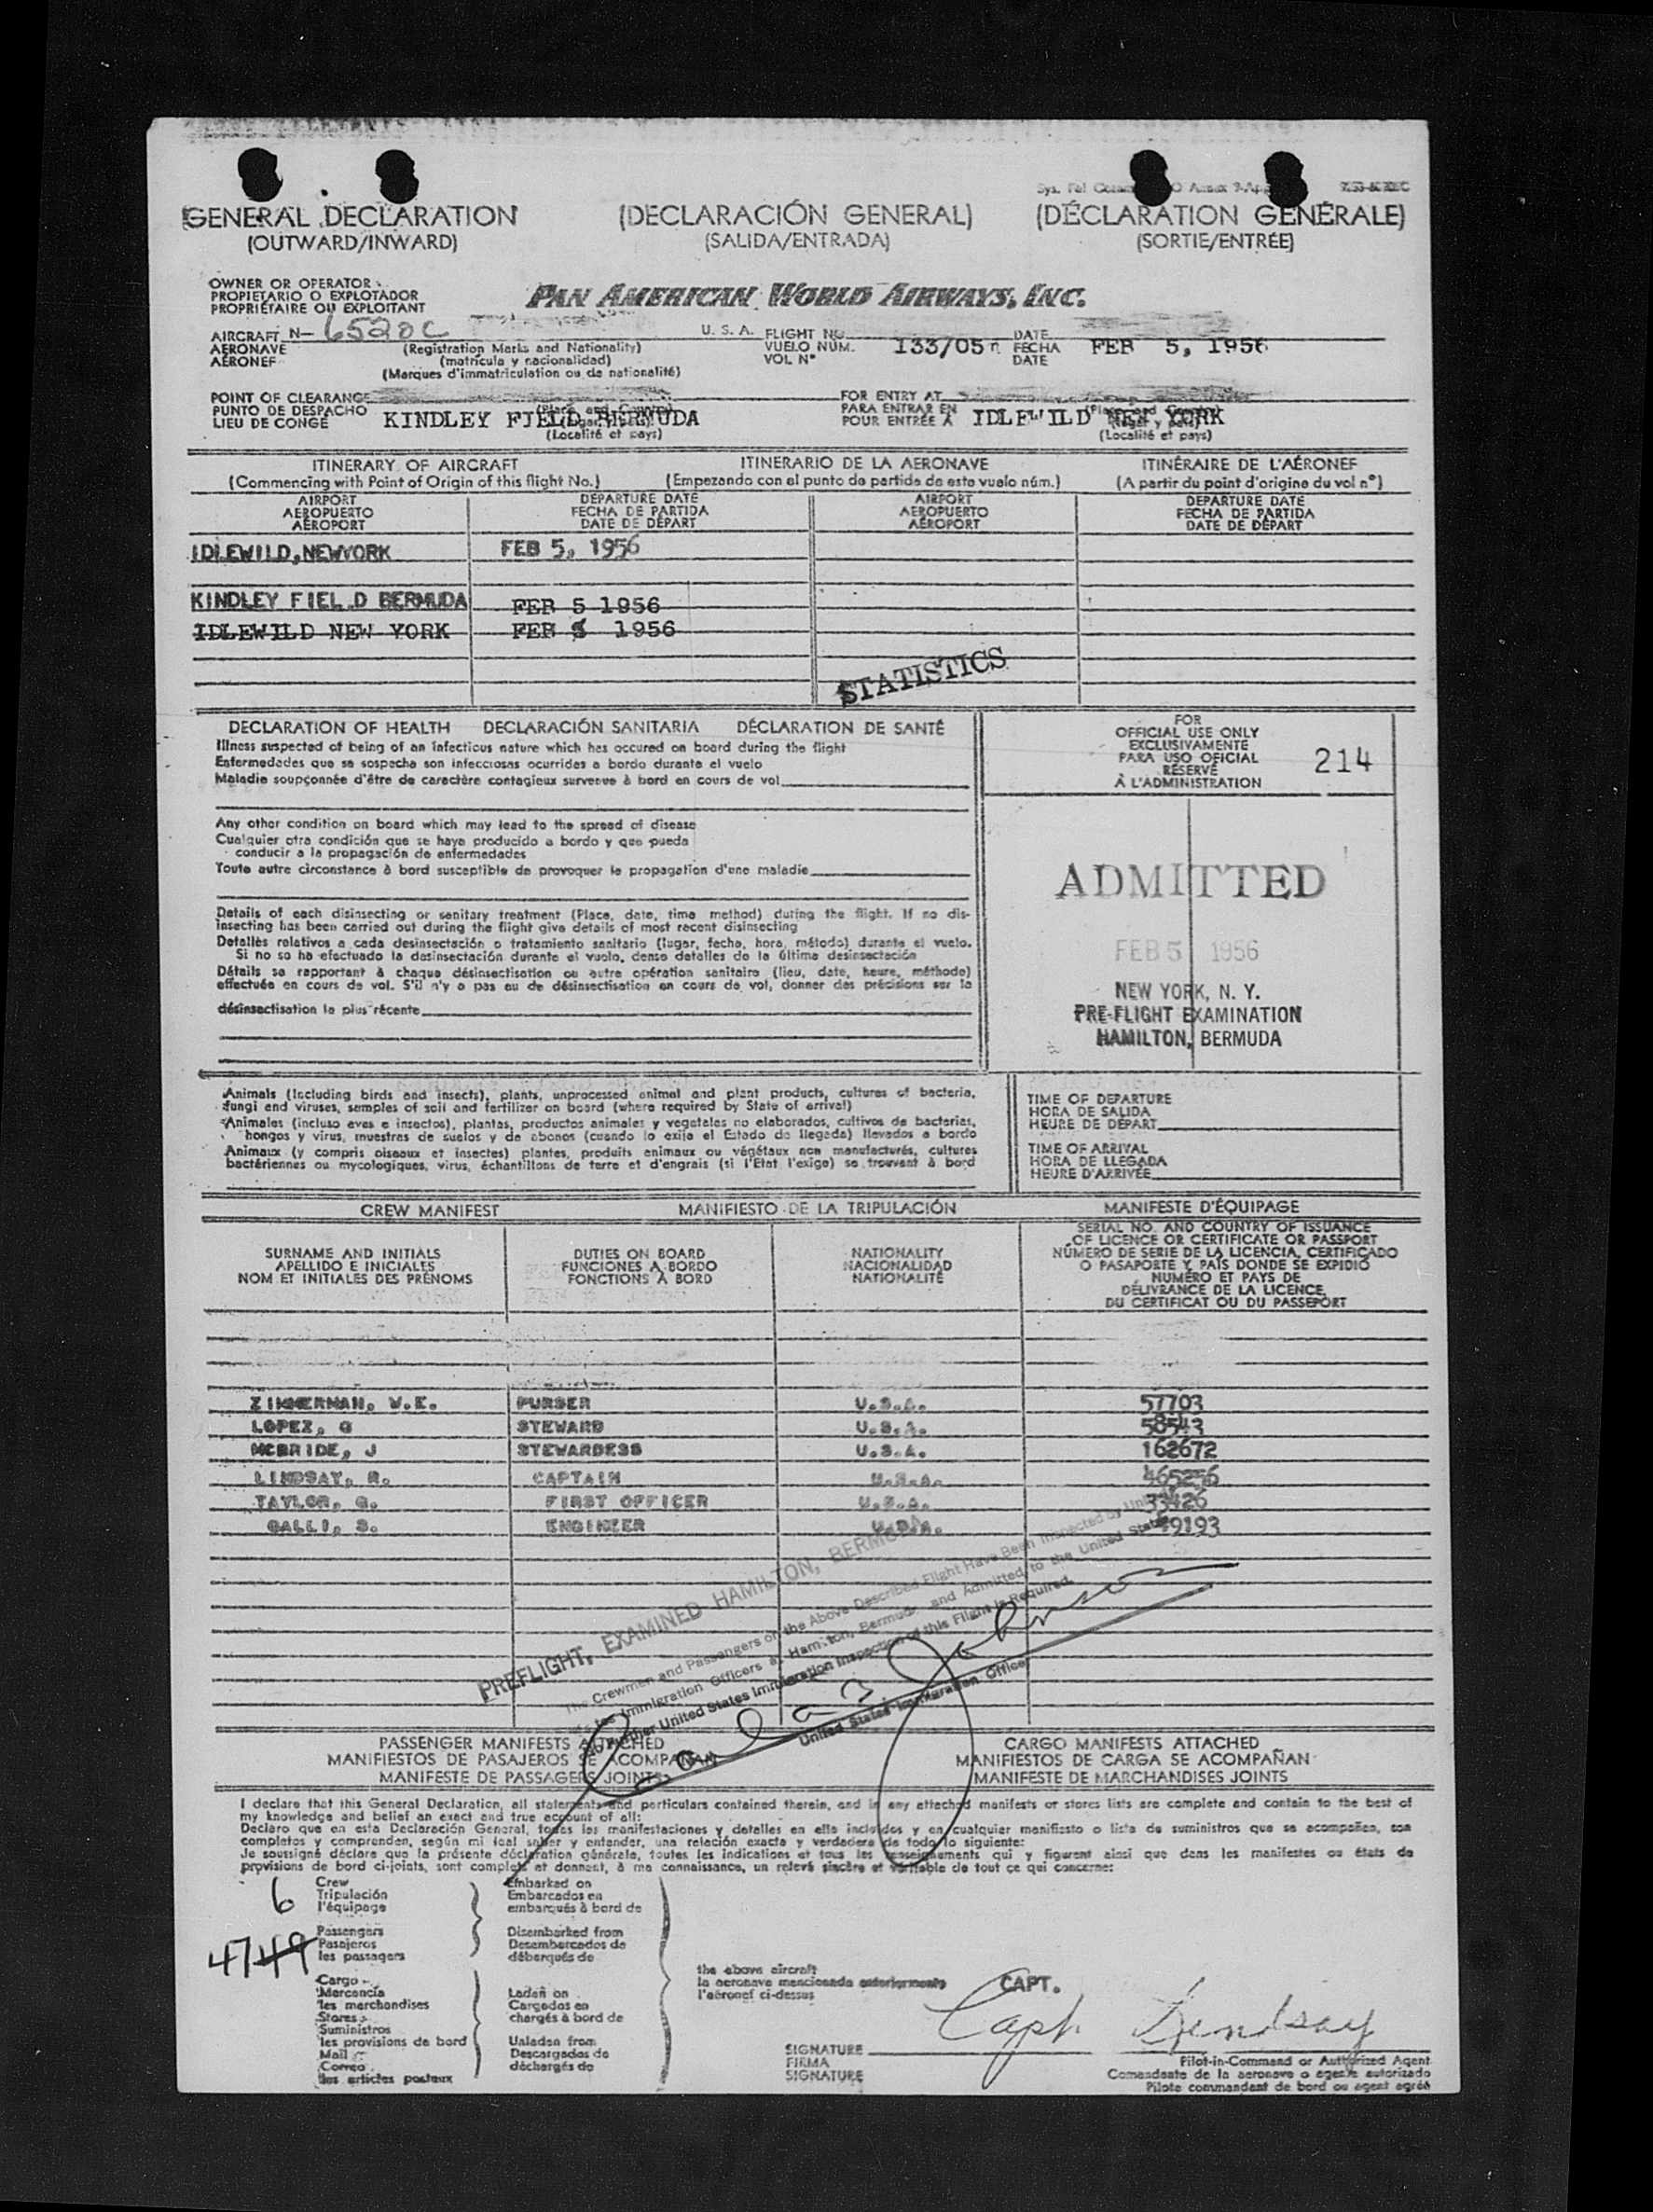 GENERAL DECLARATION (DECLARACIÓN GENERAL) (DÉCLARATION GENÉRALE)
(OUTWARD/INWARD) (SALIDA/ENTRADA) (SORTIE/ENTRÉE)
OWNER OR OPERATOR
PROPIETARIO O EXPLOTADOR
PROPRIÉTAIRE OU EXPLOITANT
PAN AMERICAN WORLD AIRWAYS, INC.
AIRCRAFT N- 6520C U. S. A. FLIGHT NO. DATE
AERONAVE (Registration Marks and Nationality) VUELO NÚM. 133/05 FECHA FEB 5, 1956
AÉRONEF (matrícula y nacionalidad) VOL N° DATE
(Marques d'immatriculation ou de nationalité)
POINT OF CLEARANCE FOR ENTRY AT
PUNTO DE DESPACHO KINDLEY FIELD BERMUDA PARA ENTRAR EN IDLEWILD NEW YORK
LIEU DE CONGÉ POUR ENTRÉE A
(Localité et pays) (Localité et pays)
ITINERARY OF AIRCRAFT ITINERARIO DE LA AERONAVE ITINÉRAIRE DE L'AÉRONEF
(Commencing with Point of Origin of this flight No.) (Empezando con el punto de partida de este vuelo núm.) (A partir du point d'origine du vol n°)
AIRPORT DEPARTURE DATE AIRPORT DEPARTURE DATE
AEROPUERTO FECHA DE PARTIDA AEROPUERTO FECHA DE PARTIDA
AÉROPORT DATE DE DÉPART AÉROPORT DATE DE DÉPART
IDLEWILD, NEWYORK FEB 5, 1956
KINDLEY FIELD BERMUDA FEB 5 1956
IDLEWILD NEW YORK FEB 5 1956
STATISTICS
DECLARATION OF HEALTH DECLARACIÓN SANITARIA DÉCLARATION DE SANTÉ
Illness suspected of being of an infectious nature which has occured on board during the flight
Enfermedades que se sospecha son infecciosas ocurridas a bordo durante el vuelo
Maladie soupçonnée d'être de caractère contagieux survenue à bord en cours de vol
FOR
OFFICIAL USE ONLY
EXCLUSIVAMENTE
PARA USO OFICIAL
RÉSERVÉ
À L'ADMINISTRATION
214
Any other condition on board which may lead to the spread of disease
Cualquier otra condición que se haya producido a bordo y que pueda
conducir a la propagación de enfermedades
Toute autre circonstance à bord susceptible de provoquer la propagation d'une maladie
ADMITTED
FEB 5 1956
NEW YORK, N. Y.
PRE-FLIGHT EXAMINATION
HAMILTON, BERMUDA
Details of each disinsecting or sanitary treatment (Place, date, time method) during the flight. If no dis-
insecting has been carried out during the flight give details of most recent disinsecting
Detallès relativos a cada desinsectación o tratamiento sanitario (lugar, fecha, hora, método) durante el vuelo.
Si no se ha efectuado la desinsectación durante el vuelo, dense detalles de la última desinsectación
Détails se rapportant à chaque désinsectisation ou autre opération sanitaire (lieu, date, heure, méthode)
effectuée en cours de vol. S'il n'y a pas eu de désinsectisation en cours de vol, donner des précisions sur la
désinsectisation la plus récente
Animals (Including birds and insects), plants, unprocessed animal and plant products, cultures of bacteria,
fungi and viruses, samples of soil and fertilizer on board (where required by State of arrival)
Animales (incluso aves e insectos), plantas, productos animales y vegetales no elaborados, cultivos de bacterias,
hongos y virus, muestras de suelos y de abonos (cuando lo exija el Estado de llegada) llevados a bordo
Animaux (y compris oiseaux et insectes) plantes, produits animaux ou végétaux non manufacturés, cultures
bactériennes ou mycologiques, virus, échantillons de terre et d'engrais (si l'Etat l'exige) se trouvant à bord
TIME OF DEPARTURE
HORA DE SALIDA
HEURE DE DÉPART
TIME OF ARRIVAL
HORA DE LLEGADA
HEURE D'ARRIVÉE
CREW MANIFEST MANIFIESTO DE LA TRIPULACIÓN MANIFESTE D'ÉQUIPAGE
SURNAME AND INITIALS
APELLIDO E INICIALES
NOM ET INITIALES DES PRÉNOMS
DUTIES ON BOARD
FUNCIONES A BORDO
FONCTIONS À BORD
NATIONALITY
NACIONALIDAD
NATIONALITÉ
SERIAL NO. AND COUNTRY OF ISSUANCE
OF LICENCE OR CERTIFICATE OR PASSPORT
NÚMERO DE SERIE DE LA LICENCIA, CERTIFICADO
O PASAPORTE Y PAÍS DONDE SE EXPIDIÓ
NUMÉRO ET PAYS DE
DÉLIVRANCE DE LA LICENCE,
DU CERTIFICAT OU DU PASSEPORT
ZIMMERMAN, W.E. PURSER U.S.A. 57703
LOPEZ, G STEWARD U.S.A. 58543
MCBRIDE, J STEWARDESS U.S.A. 162672
LINDSAY, R. CAPTAIN U.S.A. 465256
TAYLOR, G. FIRST OFFICER U.S.A. 33426
GALLI, S. ENGINEER U.S.A. 9193
PREFLIGHT, EXAMINED HAMILTON, BERMUDA
The Crewmen and Passengers on the Above Described Flight Have Been Inspected by
Immigration Officers at Hamilton, Bermuda and Admitted to the United States
No Further United States Immigration Inspection of this Flight is Required.
United States Immigration Officer
PASSENGER MANIFESTS ATTACHED CARGO MANIFESTS ATTACHED
MANIFIESTOS DE PASAJEROS SE ACOMPAÑAN MANIFIESTOS DE CARGA SE ACOMPAÑAN
MANIFESTE DE PASSAGERS JOINTS MANIFESTE DE MARCHANDISES JOINTS
I declare that this General Declaration, all statements and particulars contained therein, and in any attached manifests or stores lists are complete and contain to the best of
my knowledge and belief an exact and true account of all:
Declaro que en esta Declaración General, todas las manifestaciones y detalles en ella incluidos y en cualquier manifiesto o lista de suministros que se acompañen, son
completos y comprenden, según mi leal saber y entender, una relación exacta y verdadera de todo lo siguiente:
Je soussigné déclare que la présente déclaration générale, toutes les indications et tous les renseignements qui y figurent ainsi que dans les manifestes ou états de
provisions de bord ci-joints, sont complets et donnent, à ma connaissance, un relevé sincère et véritable de tout ce qui concerne:
6
Crew
Tripulación
l'équipage
Embarked on
Embarcados en
embarqués à bord de
47 49
Passengers
Pasajeros
les passagers
Disembarked from
Desembarcados de
débarqués de
Cargo
Mercancía
les marchandises
Stores
Suministros
les provisions de bord
Mail
Correo
les articles postaux
Laden on
Cargados en
chargés à bord de
Unladen from
Descargados de
déchargés de
the above aircraft
la aeronave mencionada anteriormente
l'aéronef ci-dessus
CAPT.
Capt. Lindsay
SIGNATURE
FIRMA
SIGNATURE
Pilot-in-Command or Authorized Agent
Comandante de la aeronave o agente autorizado
Pilote commandant de bord ou agent agréé